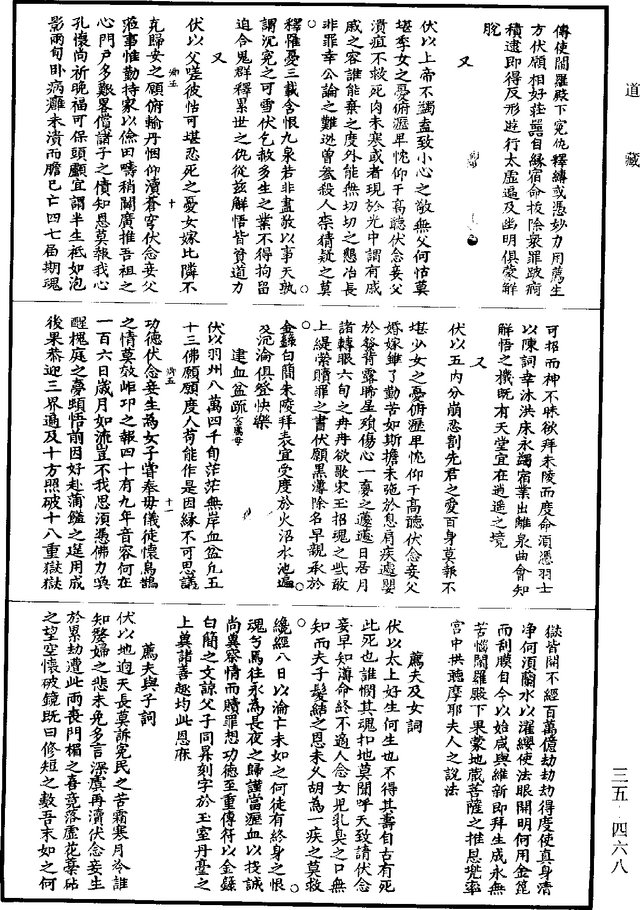 道藏
三五·四六八
傳使閻羅殿下冤仇釋縛或憑妙力用薦生
方伏願相好莊嚴自緣宿命拔除衆罪跛痾
積逮即得反形遊行太虛遍及幽明俱蒙解
脫
又
伏以上帝不蠲盍致小心之敬無父何怙莫
堪季女之憂俯瀝卑忱仰干高聽伏念妾父
潰疽不救死肉未寒或者現於光中謂有戚
戚之容誰能棄之度外能無切切之懇冶長
非罪幸公論之難逃曾參殺人柰猜疑之莫
釋罹憂三載含恨九泉若非盡敬以事天孰
謂沉冤之可雪伏乞赦多生之業不得拘留
追合鬼群釋累世之仇從兹解悟皆資道力
又
伏以父嗟彼怙可堪忍死之憂女嫁比隣不
克歸安之願俯輸丹悃仰瀆蒼穹伏念妾父
蒞事惟勤持家以儉田疇稍闢廣推吾祖之
心門戶多艱畧償諸子之債知恩莫報我心
孔懷尚祈晚福可保頭顱宜謂半生祗如泡
影兩旬卧病癰未潰而膽已亡四七屆期魂
可招而神不昧欲拜朱陵而度命須憑羽士
以陳詞幸沐洪庥永蠲宿業出離泉曲會知
解悟之機既有天堂宜在逍遥之境
又
伏以五內分崩忍割先君之愛百身莫報不
堪少女之憂俯瀝卑忱仰干高聽伏念妾父
婚嫁雖了勤苦如斯擔未弛於息肩疾遽嬰
於發背露晞星殞傷心一夢之蘧蘧日居月
諸轉眼六旬之冉冉欲歌宋玉招魂之些敢
上緹縈贖罪之書伏願黑簿除名早親承於
金籙白簡朱陵拜表宜受度於火沼水池遍
及沉淪俱登快樂
建血盆疏女薦母
伏以羽州八萬四千旬茫茫無岸血盆凡五
十三佛願願度人苟能作是因緣不可思議
功德伏念妾生為女子嘗奉毋儀徒懷烏鵲
之情莫效岵屺之報四十有九年音容何在
一百六日歲月如流豈不我思須憑佛力喚
醒槐庭之夢頭悟前因好赴蒲鑑之筵用成
後果恭迎三界遍及十方照破十八重獄獄
獄皆開不經百萬億劫劫劫得度使真身清
净何須蘭水以濯纓使法眼開明何用金箆
而刮膜自今以始咸與維新即拜生成永無
苦惱閻羅殿下果蒙地藏菩薩之推恩兠率
宮中共聽摩耶夫人之說法
薦夫及女詞
伏以太上好生何生也不得其壽自古有死
此死也誰憫其魂扣地莫聞呼天致請伏念
妾早知薄命終不適人念女兒乳臭之口無
知而夫子髮結之恩未乂胡為一疾之莫救
纔經八日以淪亡未如之何徒有終身之恨
魂兮焉往永為長夜之歸謹當瀝血以投誠
尚兾察情而贖罪想功德至重傳符以金籙
白簡之文諒父子同昇刻字於玉室丹臺之
上兾諸善趣均此恩庥
薦夫與子詞
伏以地迥天長莫訴寃民之苦霜寒月冷誰
知嫠婦之悲未免多言深虞再瀆伏念妾生
於累劫遭此兩喪門楣之喜竟落虛花藁砧
之望空懷破鏡既曰修短之數吾末如之何